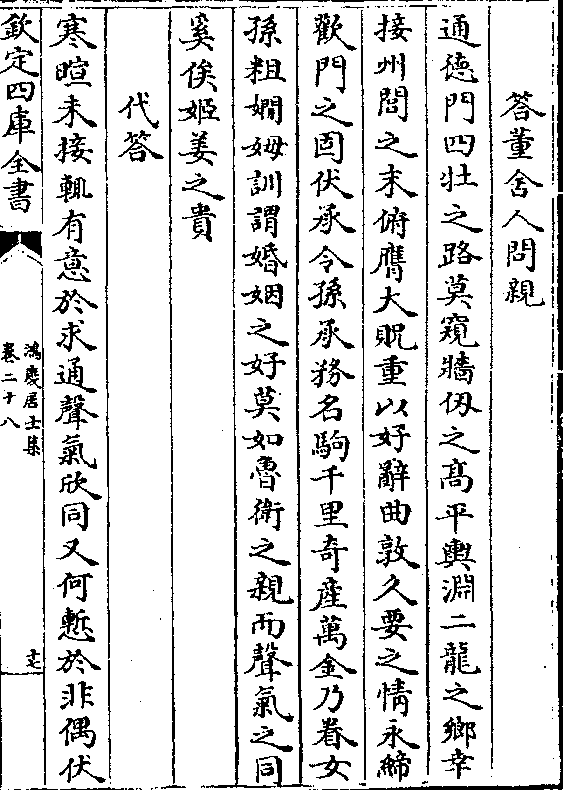 答董舍人問親
通徳門四壮之路莫窺牆仭之髙平輿淵二龍之鄉幸
接州閭之末俯膺大貺重以好辭曲敦久要之情永締
歡門之固伏承令孫承務名駒千里竒産萬金乃眷女
孫粗嫺姆訓謂婚姻之好莫如魯衛之親而聲氣之同
奚俟姬姜之貴
代答
寒暄未接輒有意於求通聲氣欣同又何慙於非偶伏
欽定四庫全書
鴻慶居士集
卷二十八